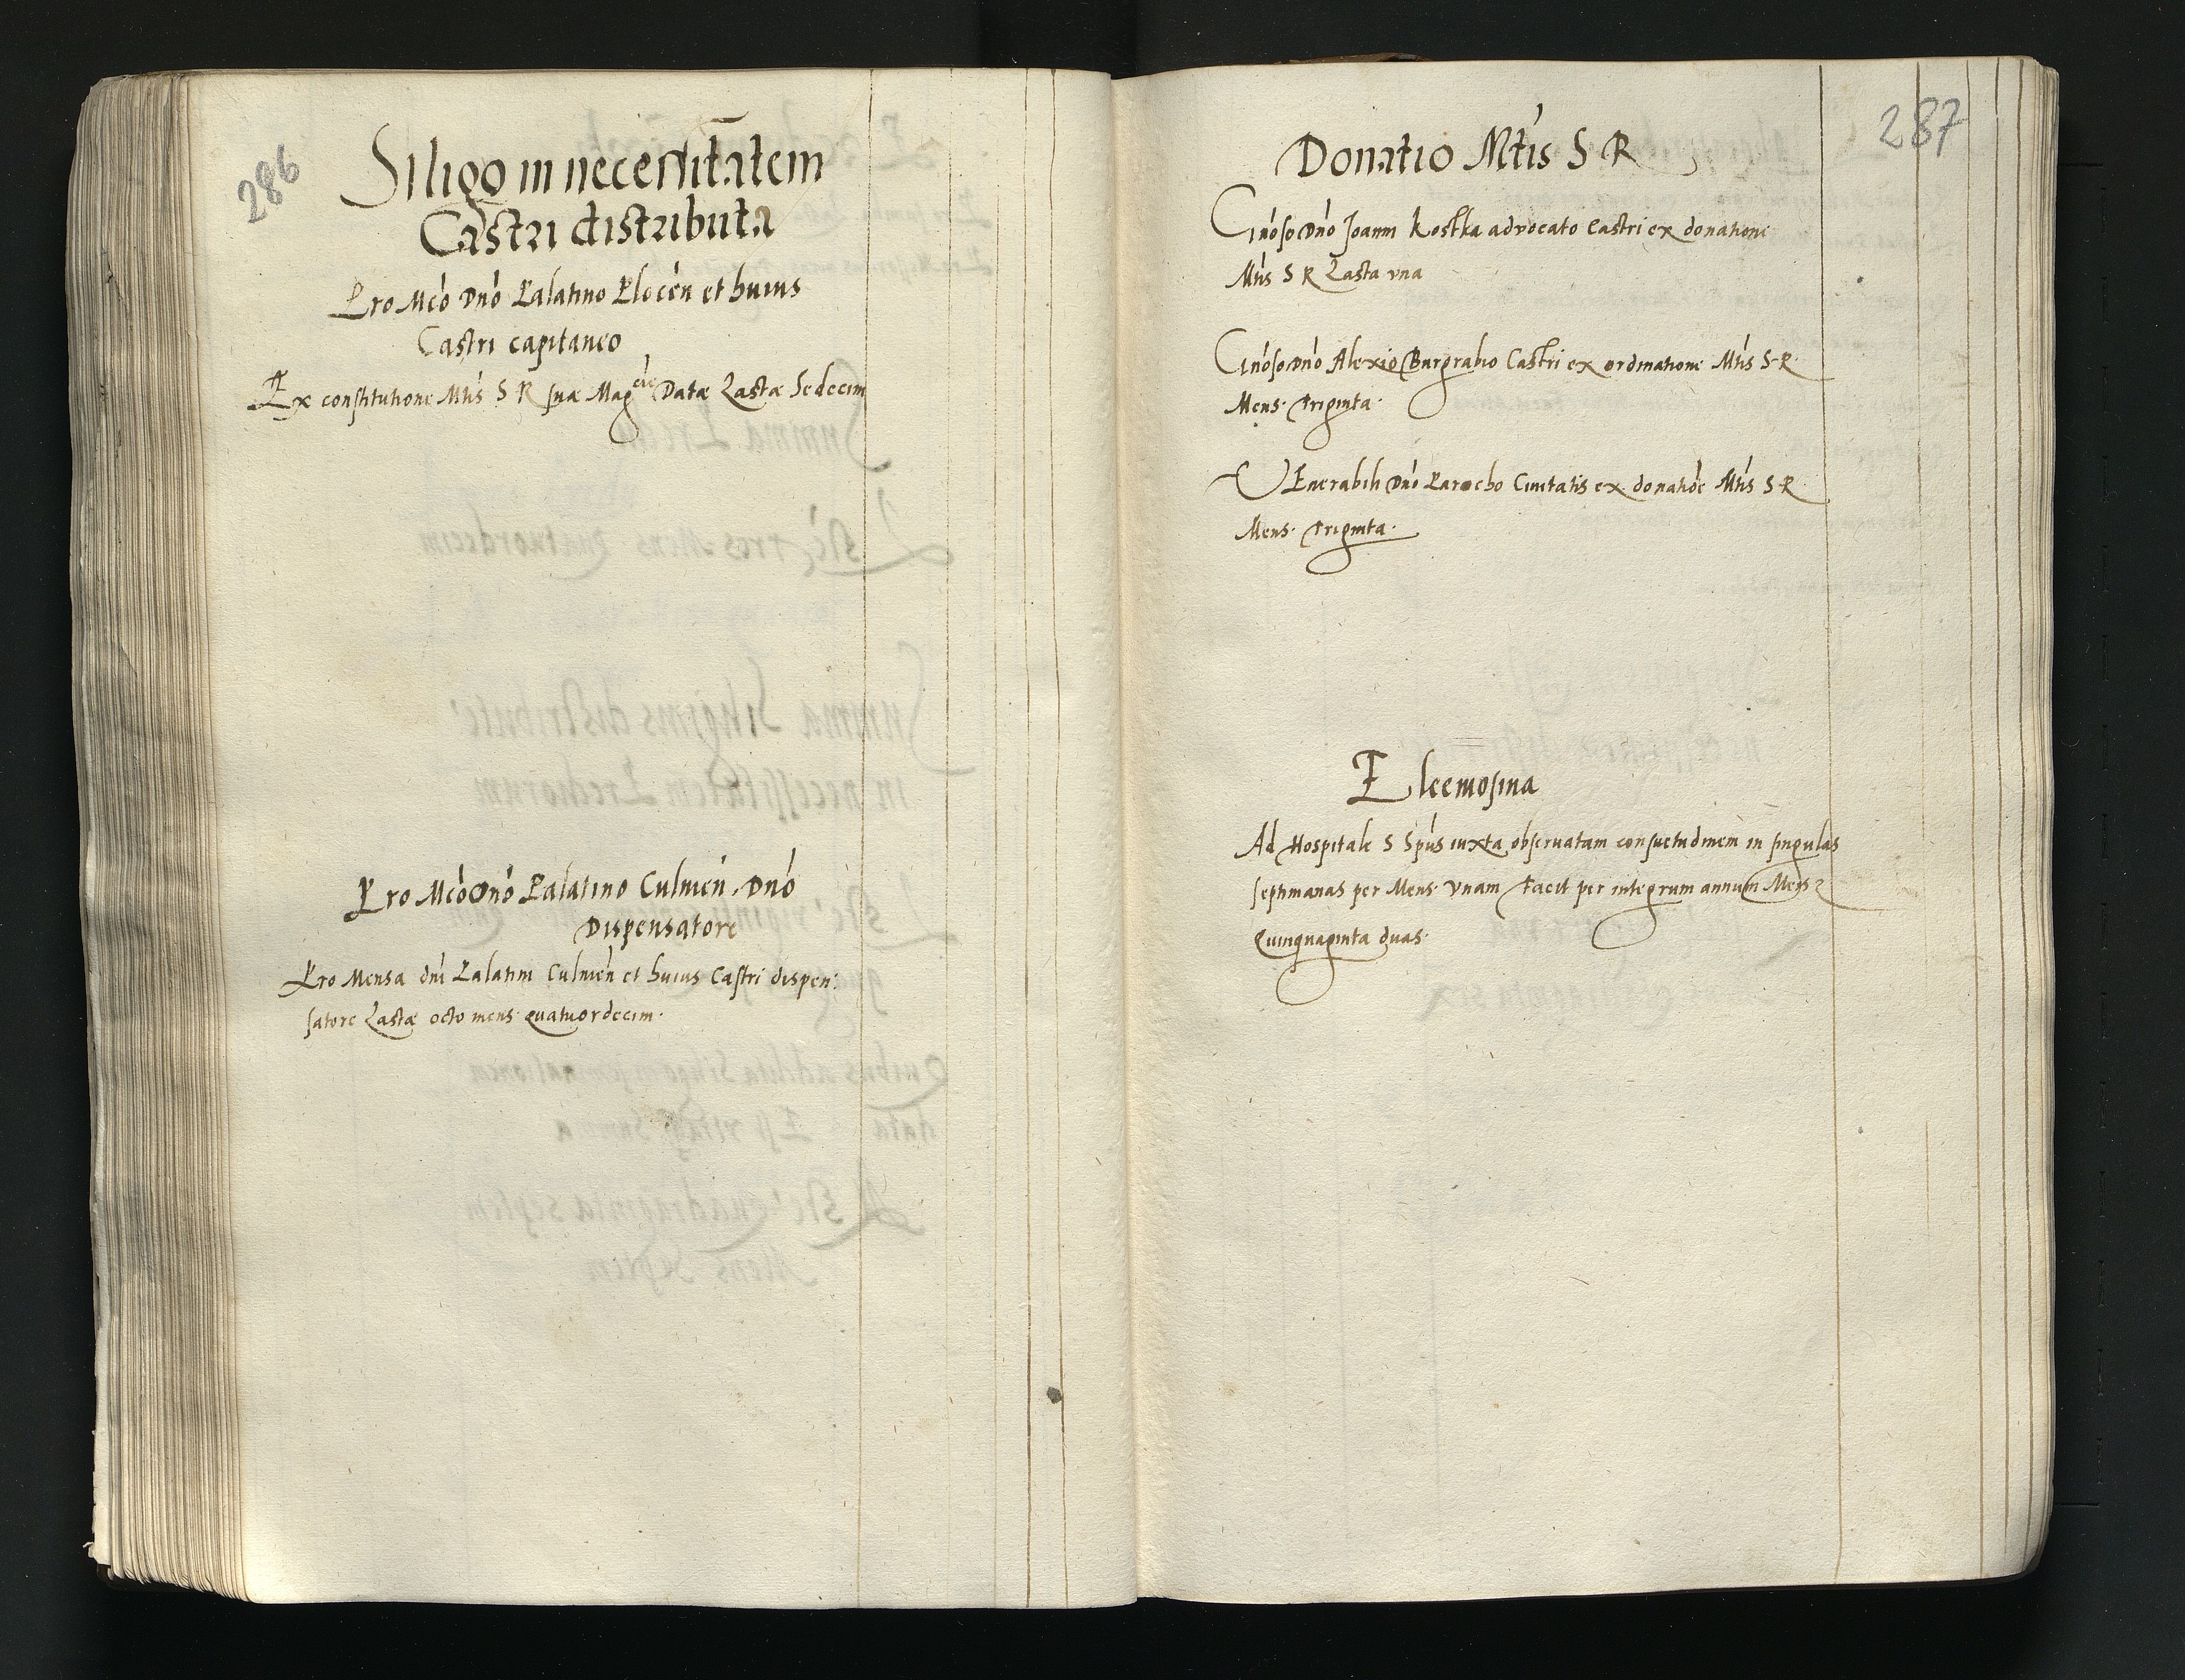 286
Siligo in necessitatem
Castri distributa
Pro Mco Dno Palatino Plocen et huius
Castri capitaneo
Ex constitutione Mtis S R suæ Magcie Datæ Lastæ Sedecim
Pro Mco Dno Palatino Culmen. Dno
Dispensatore
Pro Mensa dni Palatini Culmen et huius Castri dispen:
satore Lastæ octo mens quatuordecim.
287
Donatio Mtis S R
Gnoso Dno Joanni Kostka advocato Castri ex donatione
Mtis S R Lasta vna
Gnoso Dno Alexio Burgrabio Castri ex ordinatione Mtis S R
Mens. Triginta.
VEnerabili Dno Parocho Ciuitatis ex donatioe Mtis S R
Mens. Triginta.
Eleemosina
Ad Hospitale S Spus iuxta obseruatam consuetudinem in singulas
septimanas per Mens. vnam facit per integrum annum Mens
Quinquaginta duas.